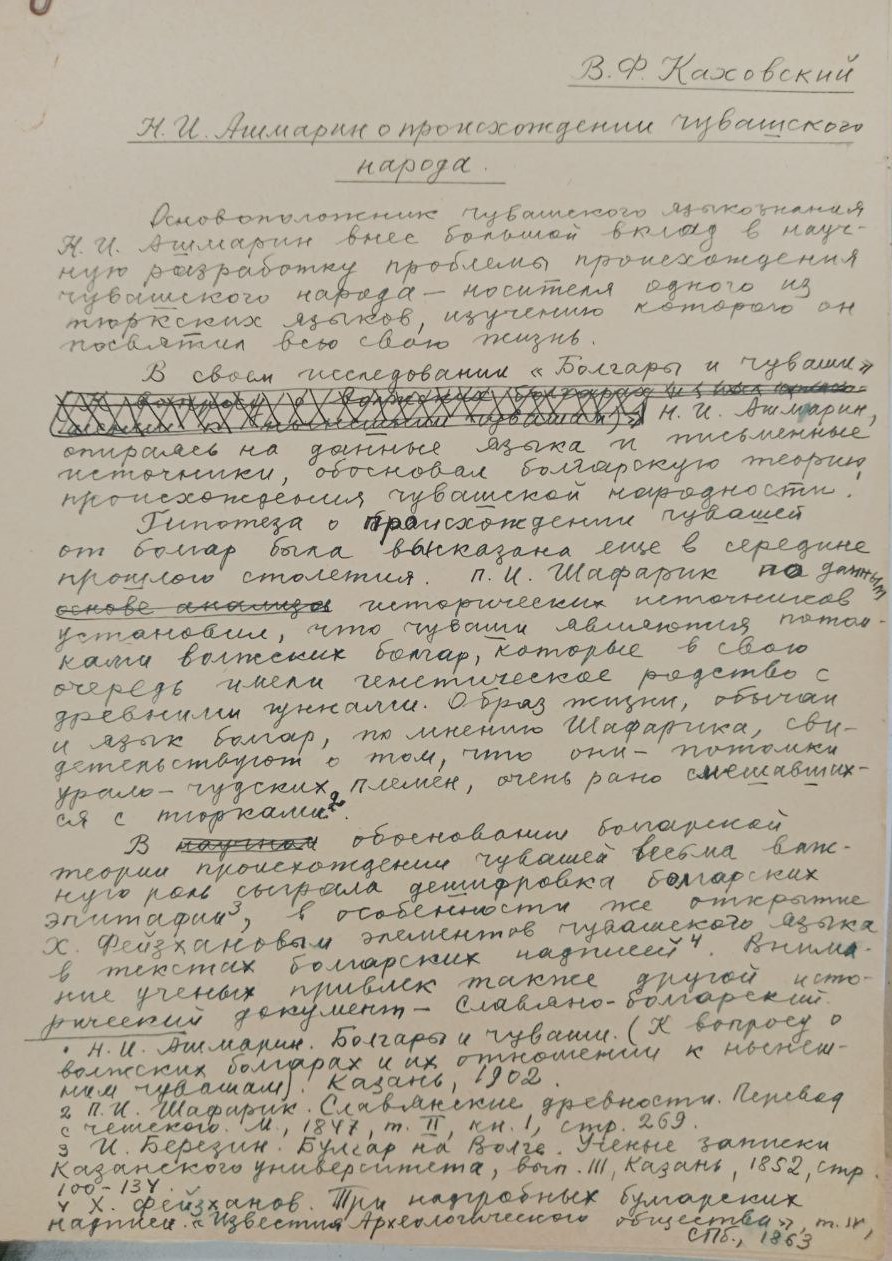 В. Ф. Каховский
Н. И. Ашмарин о происхождении чувашского
народа.
Основоположник чувашского языкознания
Н. И. Ашмарин внес большой вклад в науч-
ную разработку проблемы происхождения
чувашского народа — носителя одного из
тюркских языков, изучению которого он
посвятил всю свою жизнь.
В своем исследовании „Болгары и чуваши"
Н. И. Ашмарин,
опираясь на данные языка и письменные
источники, обосновал болгарскую теорию
происхождения чувашской народности.¹
Гипотеза о происхождении чувашей
от болгар была высказана еще в середине
прошлого столетия. П. И. Шафарик по данным
основе анализа исторических источников
установил, что чуваши являются потом-
ками волжских болгар, которые в свою
очередь имели генетическое родство с
древними гуннами. Образ жизни, обычаи
и язык болгар, по мнению Шафарика, сви-
детельствуют о том, что они — потомки
урало-чудских племен, очень рано смешавших-
ся с тюрками².
В научном обосновании болгарской
теории происхождении чувашей весьма важ-
ную роль сыграла дешифровка болгарских
эпитафий³, в особенности же открытие
Х. Фейзхановым элементов чувашского языка
в текстах болгарских надписей⁴. Внима-
ние ученых привлек также другой исто-
рический документ — Славяно-болгарский
¹ Н. И. Ашмарин. Болгары и чуваши. (К вопросу о
волжских болгарах и их отношении к нынеш-
ним чувашам). Казань, 1902.
2 П. И. Шафарик. Славянские древности. Перевод
с чешского. М., 1847, т. II, кн. 1, стр. 269.
3 И. Березин. Булгар на Волге. Ученые записки
Казанского университета, вып. III, Казань, 1852, стр.
100-134.
4 Х. Фейзханов. Три надгробных булгарских
надписи. „Известия Археологического общества", т. IV,
СПб., 1863